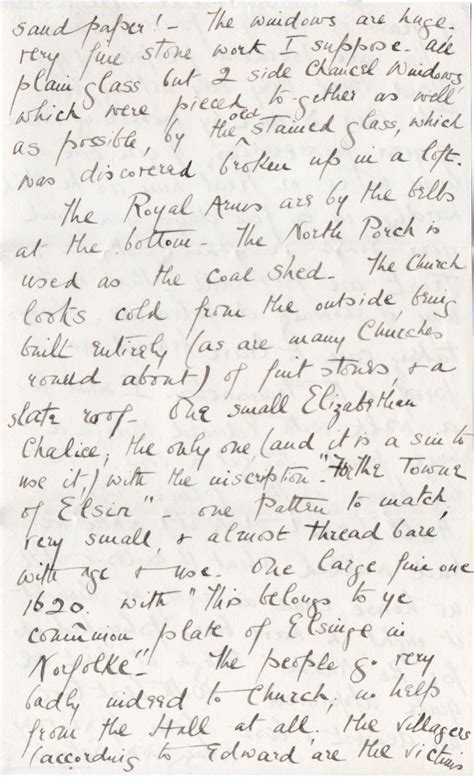 sand paper! - The windows are huge -
very fine stone work I suppose - all
plain glass but 2 side Chancel Windows,
which were pieced to-gether as well
as possible, by the old stained glass, which
was discovered broken up in a loft.
The Royal Arms are by the bells
at the bottom - The North Porch is
used as the coal shed - The Church
looks cold from the outside being
built entirely (as are many Churches
round about) of flint stones & a
slate roof - One small Elizabethan
Chalice, the only one (and it is a sin to
use it) with the inscription "For the Towne
of Elsin" - one patten to match,
very small, & almost thread bare,
with age & use - One large fine one
1620. with "This belongs to ye
common plate of Elsinge in
Norfolke" - The people go very
badly indeed to Church, no help
from the Hall at all, the villagers
(according to Edward, are the victims